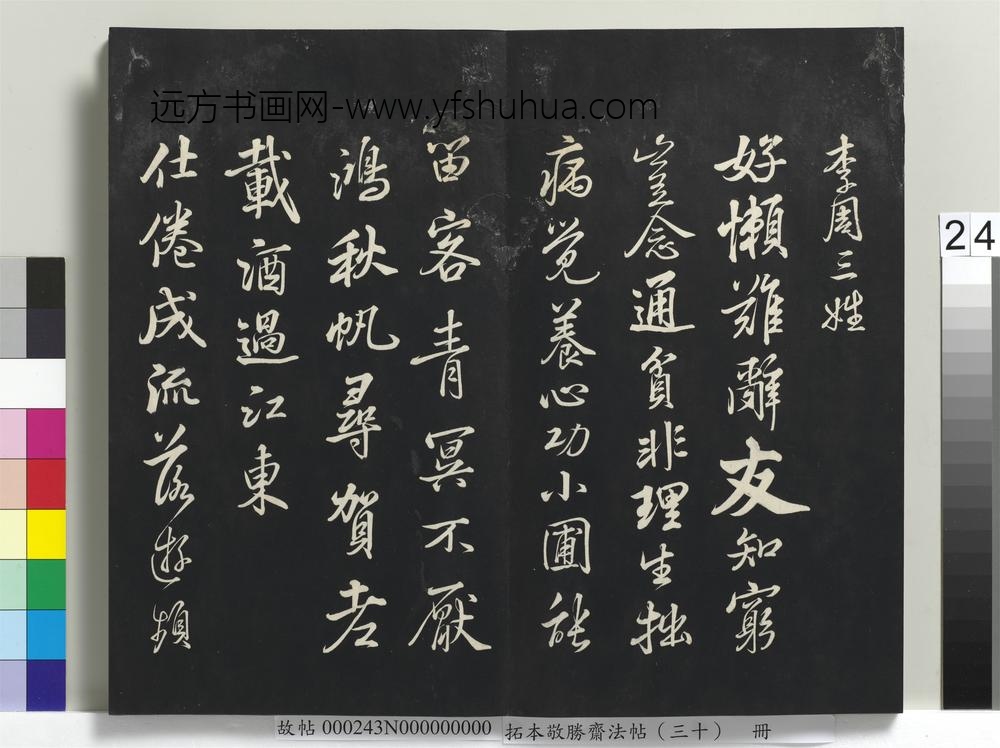 李周三姓
好懶難辭友知窮
豈念通貧非理生拙
病覺養心功小圃能
留客青冥不厭
鴻秋帆尋賀老
載酒過江東
仕倦成流落遊頻
远方书画网-www.yfshuhua.com
24
故帖 000243N000000000
拓本敬勝齋法帖（三十） 冊